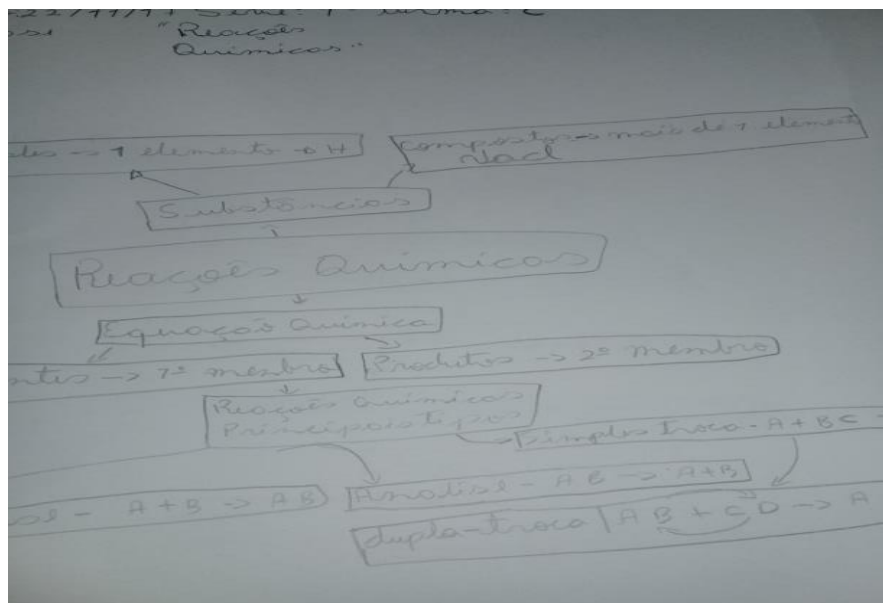 22/11/17 Série: 1ª turma: C
"Reações
Químicas"
1 elemento → H
compostos → mais de 1 element
Nacl
Substâncias
Reações Químicas
Equação Química
ntes → 1º membro
Produtos → 2º membro
Reações Químicas
Principais tipos
Simples troca - A + BC
A + B → AB
Analise - AB → A+B
dupla-troca | AB + CD → A